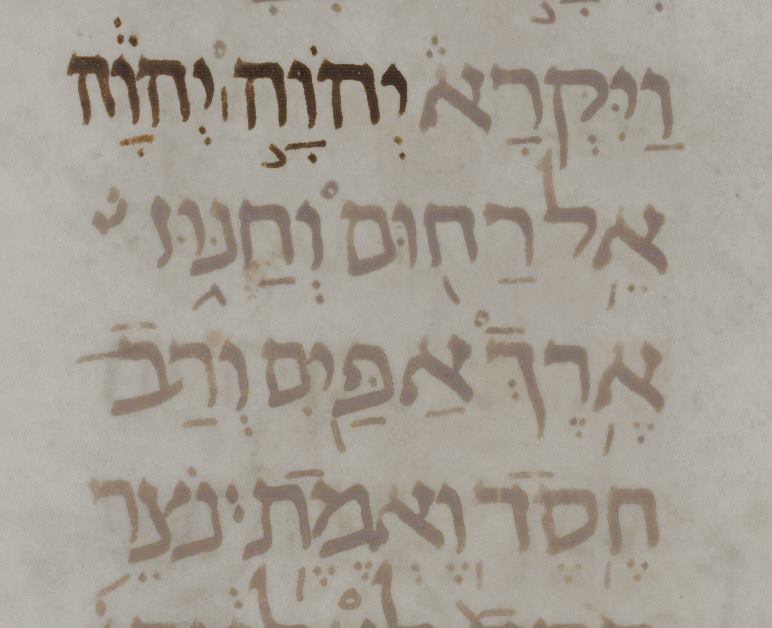 וַיִּקְרָ֑א יְהֹוָ֣ה ׀ יְהֹוָ֔ה
אֵ֥ל רַח֖וּם וְחַנּ֑וּן
אֶ֥רֶךְ אַפַּ֖יִם וְרַב
חֶ֥סֶד וֶאֱמֶֽת׃ נֹצֵ֥ר